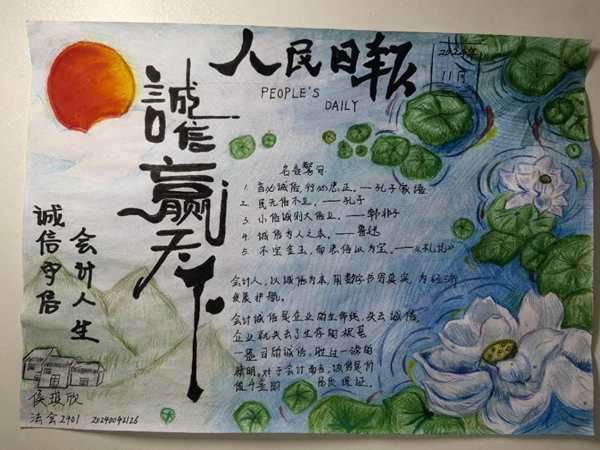 人民日報
PEOPLE'S
DAILY
2024年
11月
誠信赢天下
诚信守信
会计人生
名言警句
1. 言必诚信,行必忠正。——孔子家语
2. 民无信不立。——孔子
3. 小信诚则大信立。——韩非子
4. 诚信为人之本。——鲁迅
5. 不宝金玉,而忠信以为宝。——《礼记》
会计人,以诚信为本,用数字书写真实,为经济
发展护航。
会计诚信是企业的生命线,失去诚信,
企业就失去了生存的根基
一盎司的诚信,胜过一磅的
精明,对于会计而言,诚信是价
值千金的 品质保证.
侯琪欣
法会2401